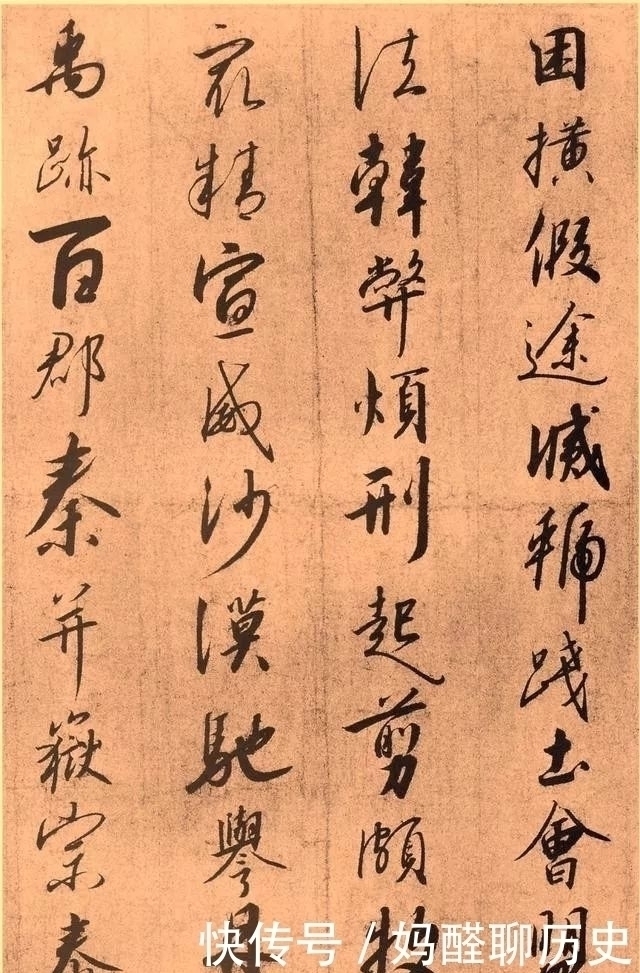 困橫假途滅虢踐土會盟
法韓弊煩刑起翦頗牧
最精宣威沙漠馳譽丹
禹跡百郡秦并嶽宗泰
快传号 / 妈醛聊历史